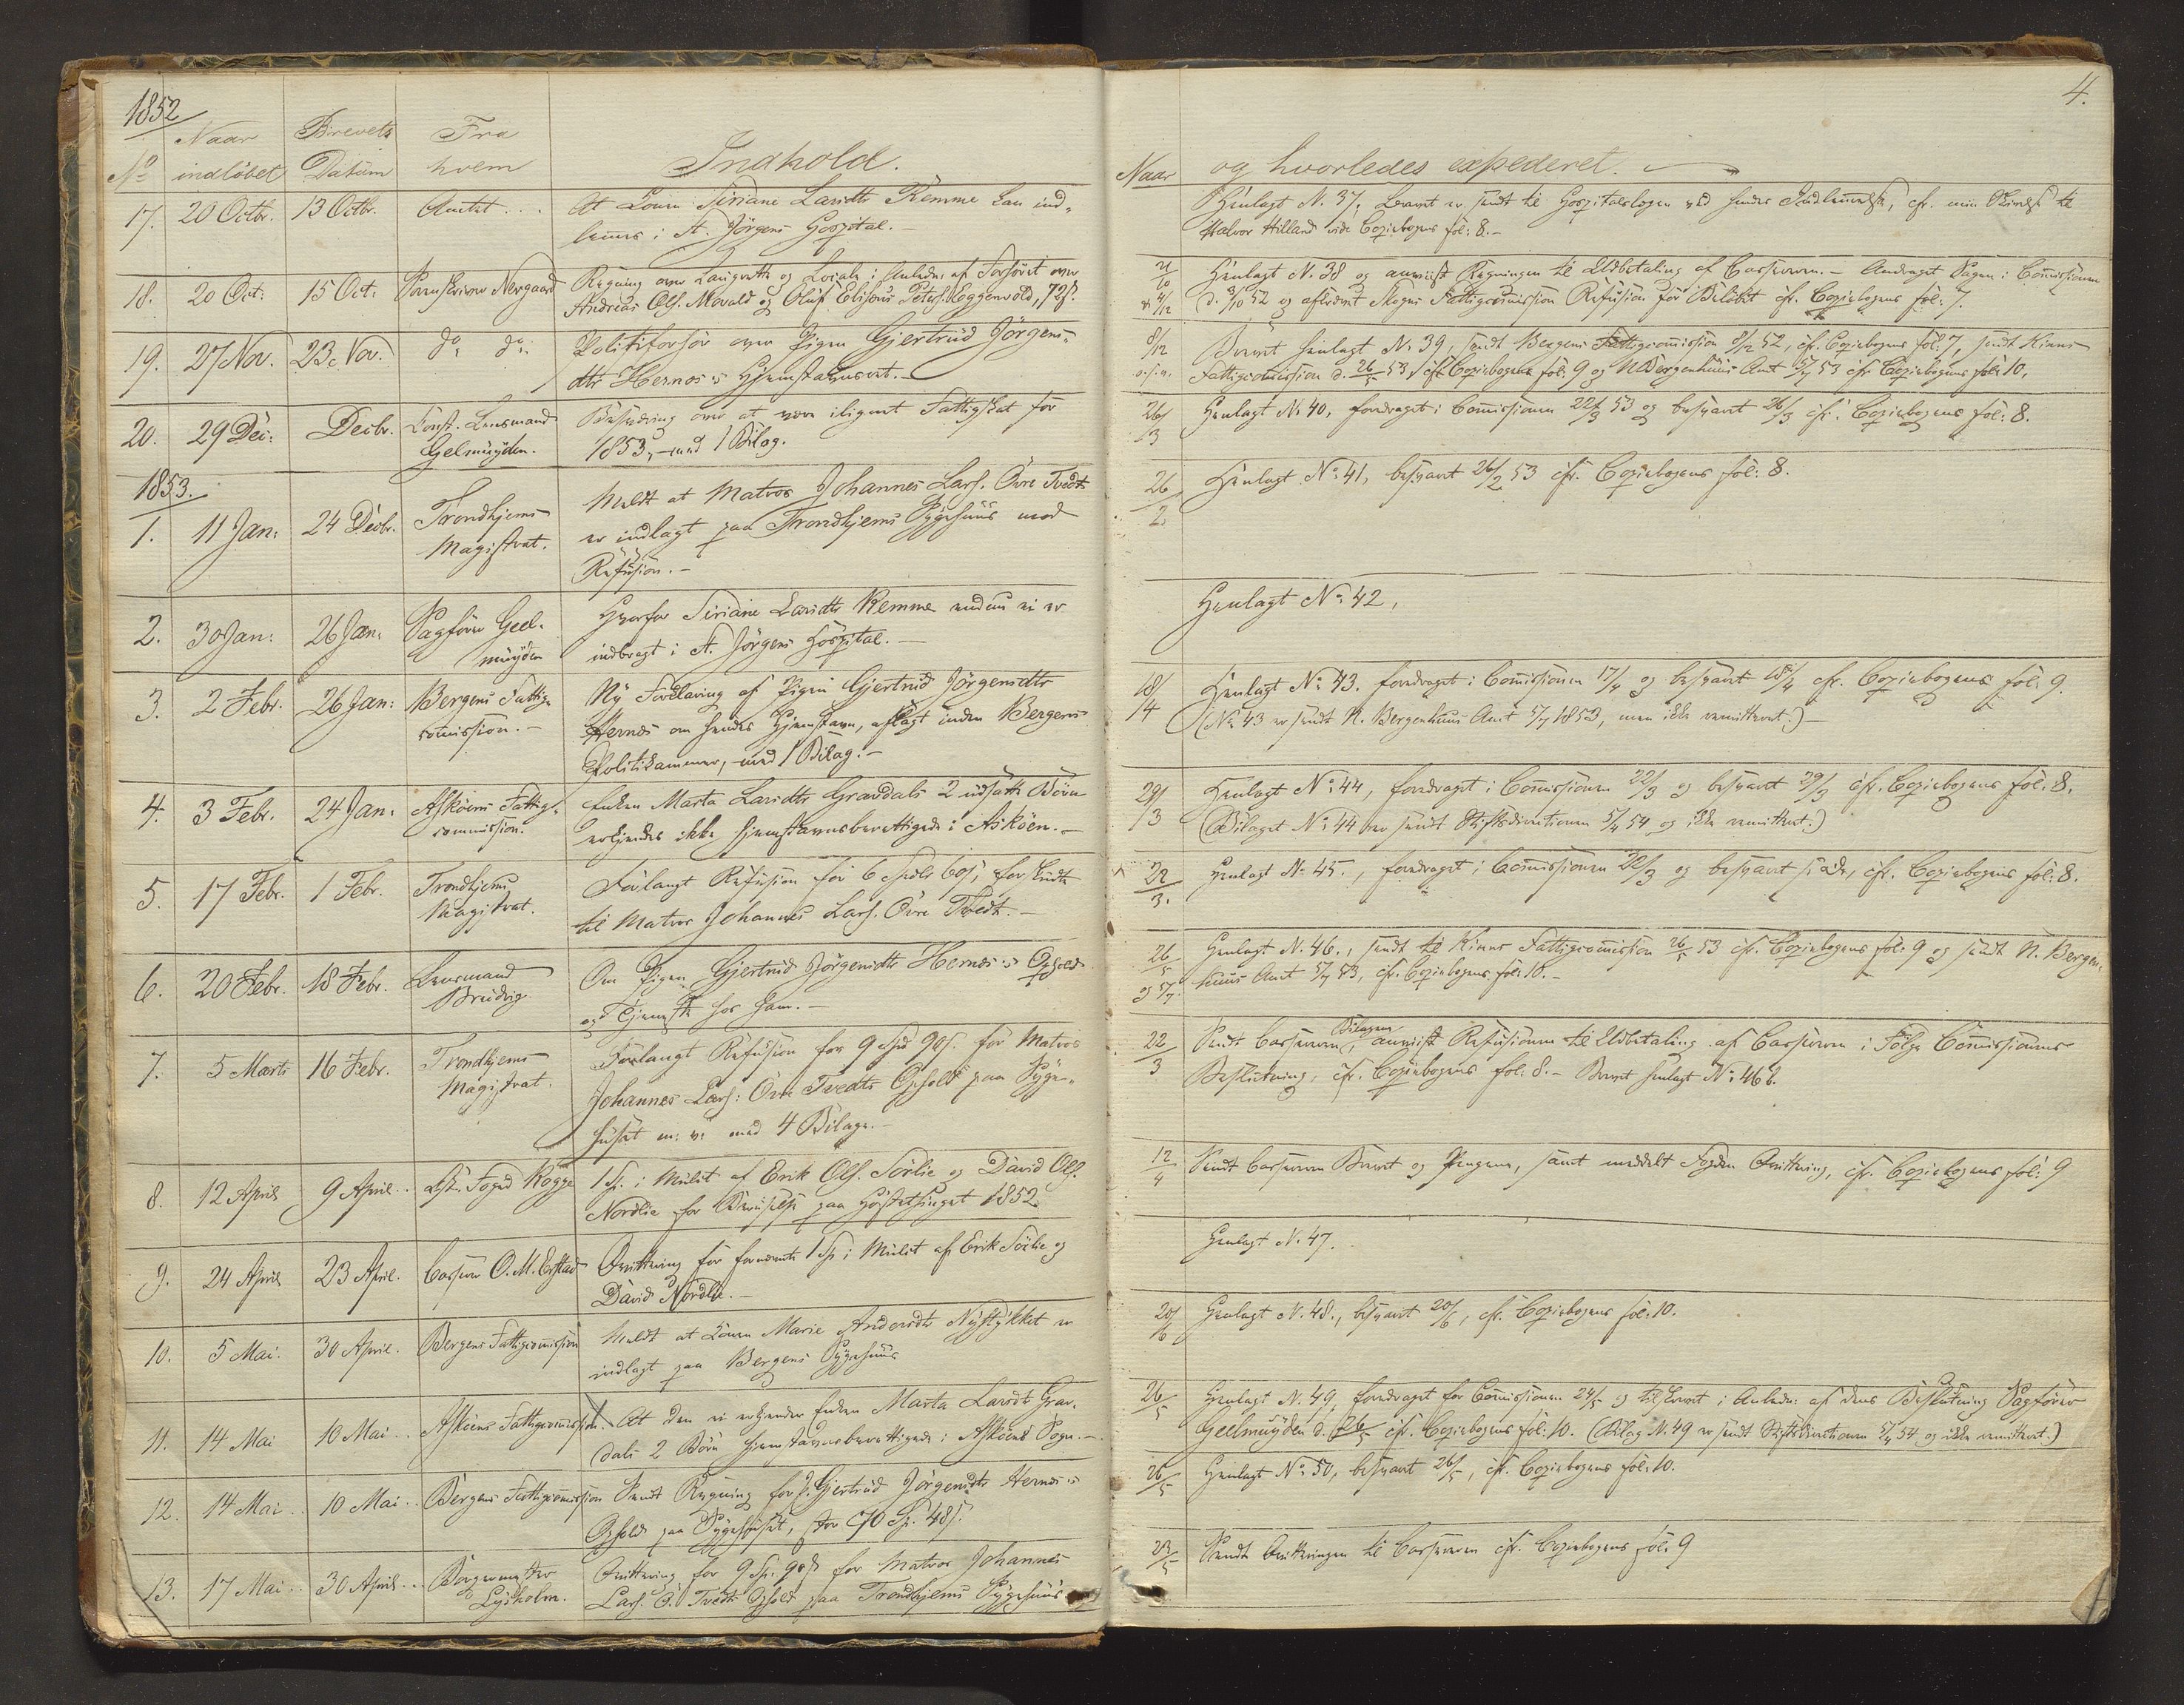 1852
Naar Brevets Fra
No indlöbet Datum hvem Indhold.
17. 20 Octbr. 13 Octbr. Amtet... At Konen Siriane Larsdtr Remme kan ind-
lemmes i St. Jörgens Hospital.-
18. 20 Oct: 15 Oct: Sorenskriver Nergaard Regning over Locale i Anledn: af Forhöret over
Andreas Ols. Movald og Oluf Elisæus Peters. Eggensvold, 72ß.
19. 27 Nov. 23 Nov. do do Politiforhör over Pigen Gjertrud Jörgens-
dtr Hernes's Hjemstavnsret.-
20. 29 Dec: Decbr. Const. Lensmand Besværing over at være ilignet Fattigskat for
Gelmuyden. 1853, med 1 Bilag.
1853.
1. 11 Jan: 24 Decbr. Trondhjems Meldt at Matros Johannes Lars. Övre Tvedt
Magistrat. er indlagt paa Trondhjems Sygehuus mod
Refusion.-
2. 30 Jan: 26 Jan: Sagförer Geel- Hvorfor Siriane Larsdtr Remme endnu ei er
muyden indbragt i St. Jörgens Hospital.-
3. 2 Febr. 26 Jan: Bergens Fattig- Ny Forklaring af Pigen Gjertrud Jörgensdtr
comission.- Hernes om hendes Hjemstavn, aflagt inden Bergens
Politikammer, med 1 Bilag.-
4. 3 Febr. 24 Jan: Asköens Fattig- Enken Marta Larsdtr Gravdals 2 udsatte Börn
commission. erkjendes ikke hjemstavnsberettigede i Asköen.-
5. 17 Febr. 1 Febr. Trondhjems Forlangt Refusion for 6 Spdlr 60ß, forskudte
Magistrat. til Matros Johannes Lars. Övre Tvedt.-
6. 20 Febr. 18 Febr. Lensmand Om Pigen Gjertrud Jörgensdtr Hernes's Ophold
Breidvig og Tjeneste hos ham.-
7. 5 Marts 16 Febr. Trondhjems Forlangt Refusion for 9 Spd 90ß. for Matros
Magistrat. Johannes Lars: Övre Tvedts Ophold paa Syge-
huset m: v: med 4 Bilage.-
8. 12 April 9 April.. Foged Rogge 1 Sp. i Mulct af Erik Ols. Sörlie og David Ols.
Nordlie for paa Höstethinget 1852.
9. 24 April 23 April. Casserer O. M. Erstad Qvittering for fornævnte 1 Sp i Mulct af Erik Sörlie og
David Nordlie.-
10. 5 Mai. 30 April. Bergens Fattigcomission Meldt at Konen Marie Andersdtr Nystykket er
indlagt paa Bergens Sygehuus
11. 14 Mai 10 Mai.. Asköens Fattigcomission. At den ei erkjender Enken Marta Larsdtr Grav-
dals 2 Börn hjemstavnsberettigede i Asköens Sogn.-
12. 14 Mai.. 10 Mai.. Bergens Fattigcomission Sendt Regning for P. Gjertrud Jörgensdtr Hernes's
Ophold paa Sygehuset, stor 70 Sp. 48ß.
13. 17 Mai.. 30 April.. Borgermester Qvittering for 9 Sp. 90ß for Matros Johannes
Lysholm. Lars. Ö. Tvedts Ophold paa Trondhjems Sygehuus
4.
Naar og hvorledes expederet.
Henlagt N. 37, Brevet er sendt til Hospitalslægen ved hendes Indlemmelse, cfr. min Skrivelse til
Halvor Hilland vide Copiebogens fol: 8.-
21/10 Henlagt N. 38 og anviist Regningen til Udbetaling af Casserern.- Andraget Sagen i Comissionen
& 4/12 d. 3/10 52 og afkrævet Skogns Fattigcomission Refusion for Belöbet cfr. Copiebogens fol: 7.
8/12 Brevet henlagt N. 39, sendt Bergens Fattigcomission 8/12 52, cfr. Copiebogens fol: 7, sendt Kinns
o.s.v. Fattigcomission d. 26/5 53, cfr. Copiebogens fol: 9 og N. Bergenhuus Amt 5/7 53 cfr. Copiebogens fol: 10.
26/3 Henlagt No 40, foredraget i Comissionen 22/3 53 og besvaret 26/3 cfr. Copiebogens fol: 8.
26/2. Henlagt No 41, besvaret 26/2 53 cfr. Copiebogens fol: 8.
Henlagt No 42,
18/4 Henlagt No 43. foredraget i Comissionen 17/4 og besvaret 18/4 cfr. Copiebogens fol: 9.
(No 43 er sendt N. Bergenhuus Amt 5/7 1853, men ikke remitteret.)-
29/3 Henlagt No 44, foredraget i Comissionen 22/3 og besvaret 29/3 cfr. Copiebogens fol: 8.
(Bilaget No 44 er sendt Stiftsdirectionen 5/4 54 og ikke remitteret.)
22/3. Henlagt No 45., foredraget i Comissionen 22/3 og besvaret s: d:, cfr. Copiebogens fol: 8.
26/5 Henlagt N. 46., sendt til Kinns Fattigcomission 26/5 53 cfr. Copiebogens fol: 9 og sendt N. Bergen-
og 5/7. huus Amt 5/7 53, cfr. Copiebogens fol: 10.-
22/3 Sendt Casserern Bilagene, anviist Refusionen til Udbetaling af Casserern i Fölge Comissionens
Beslutning, cfr. Copiebogens fol: 8.- Brevet henlagt No 46 b.
12/4 Sendt Casserern Brevet og Pengene, samt meddelt Fogden Qvittering, cfr. Copiebogens fol: 9
Henlagt N. 47.
20/6 Henlagt N. 48., besvaret 20/6, cfr. Copiebogens fol: 10.
26/5 Henlagt N. 49, foredraget for Comissionen 24/5 og tilskrevet i Anledn: af dens Beslutning Sagförer
Geelmuyden d. 26/5 cfr. Copiebogens fol: 10. (Bilag N. 49 er sendt Stiftsdirectionen 5/4 54 og ikke remitteret.)
26/5 Henlagt No 50, besvaret 26/5, cfr. Copiebogens fol: 10.
23/5 Sendt Qvitteringen til Casserern cfr. Copiebogens fol: 9